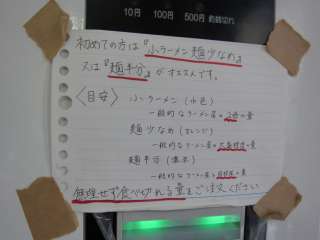 10円 100円 500円 釣銭切れ
初めての方は『小ラーメン麺少なめ』
又は『麺半分』がオススメです。
〈目安〉 小ラーメン(水色)
一般的なラーメン店の2倍の量
麺少なめ(オレンジ)
一般的なラーメン店の大盛程度の量
麺半分(
一般的なラーメン店の の量
無理せず食べ切れる量をご注文ください